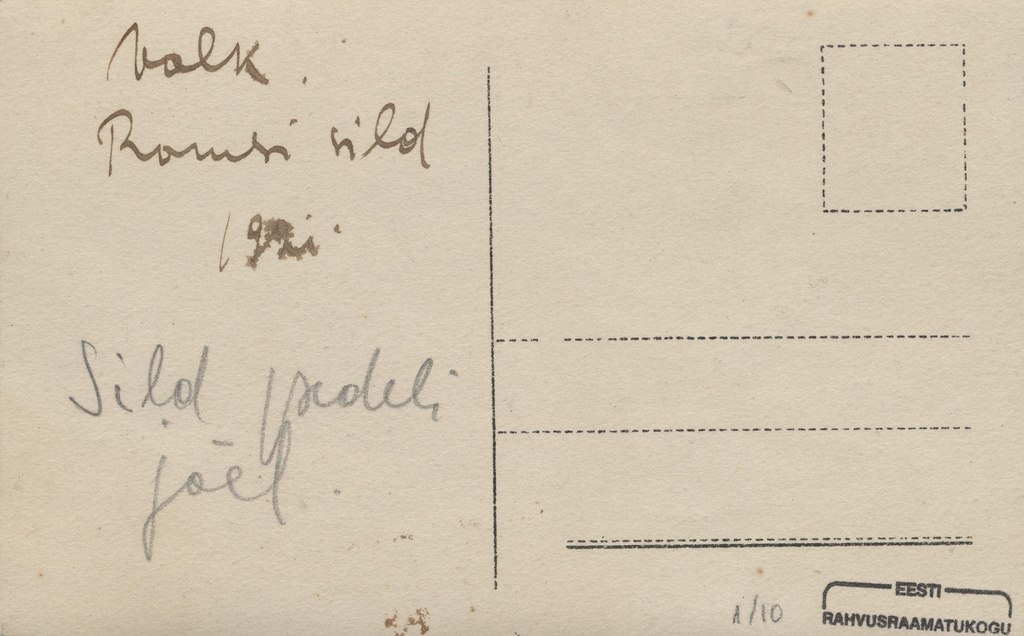 Valk.
Ramsi sild
Sild pedeli
jõel.
1/10
EESTI
RAHVUSRAAMATUKOGU